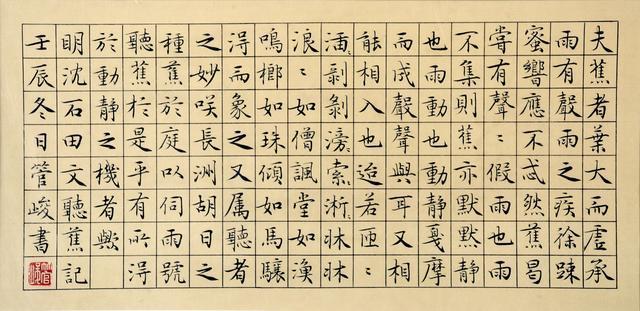 夫蕉者葉大而虛承
雨有聲雨之疾徐踈
蜜響應不忒然蕉曷
嘗有聲〻假雨也雨
不集則蕉亦默默靜
也雨動也動靜戛摩
而成聲聲與耳又相
能相入也迨若匝〻
剝剝滂〻索〻淅〻牀牀
浪〻如僧諷堂如漁
鳴榔如珠傾如馬驤
得而象之又属聽者
之妙咲長洲胡日之
種蕉於庭以伺雨號
聽蕉於是乎有所得
於動靜之機者歟
明沈石田文聽蕉記
壬辰冬日管峻書